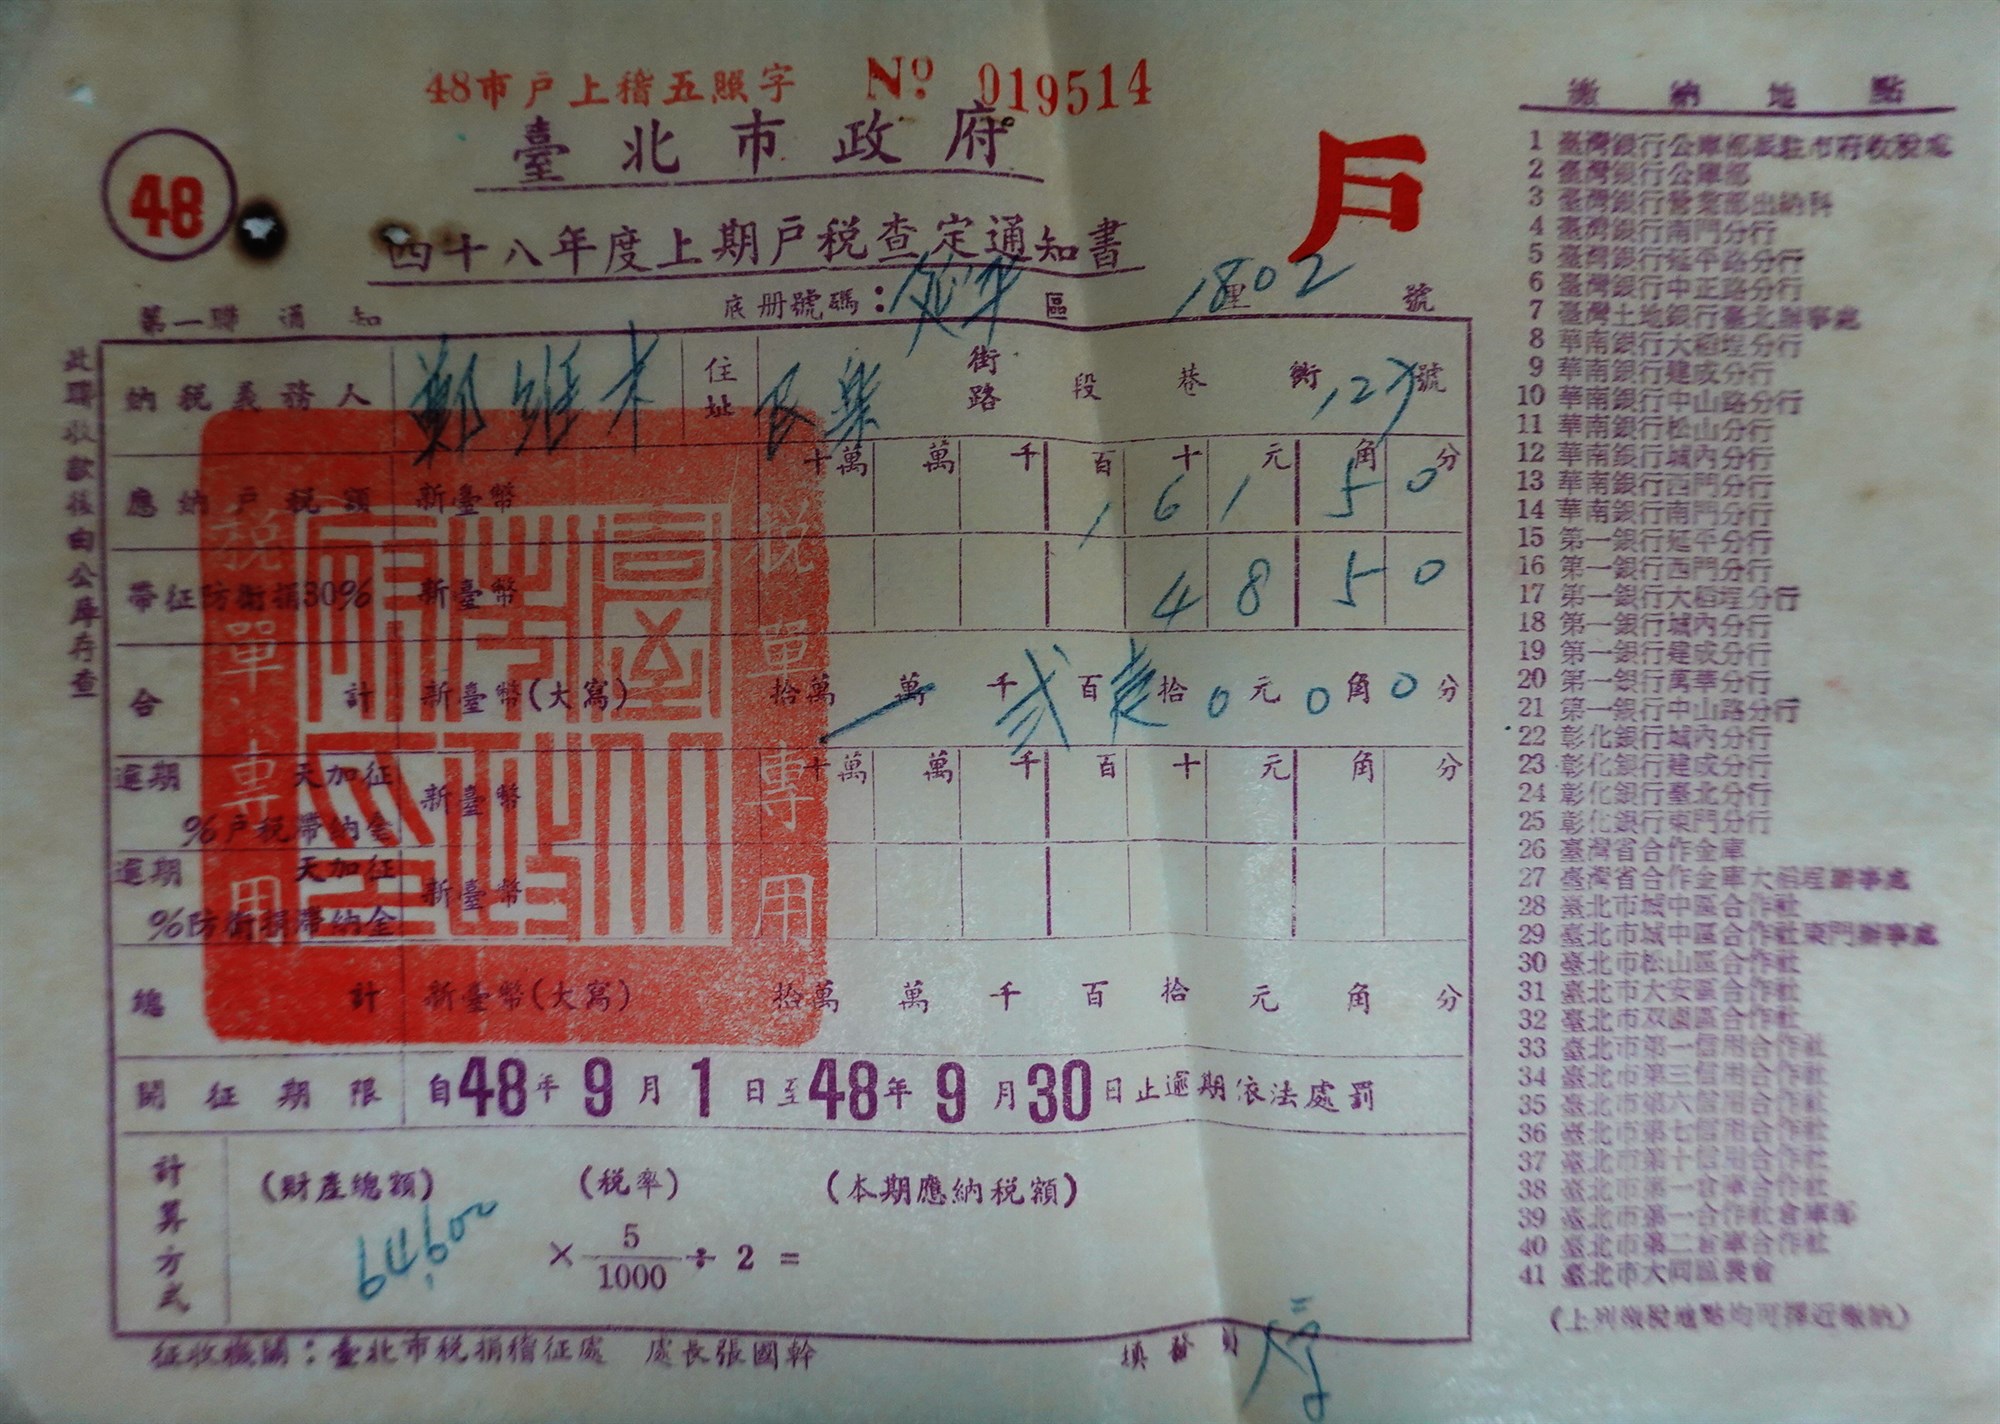 48市戶上稽五照字 Nº 019514
臺北市政府
48
戶
四十八年度上期戶稅查定通知書
第一聯 通知
底册號碼：延平區 1802 里 號
此聯收款後由公庫存查
納稅義務人 鄭 木 住址 長樂 街路 段 巷 衖 123號
十萬 萬 千 百 十 元 角 分
應納戶稅額 新臺幣 1 6 1 5 0
帶征防衛捐30% 新臺幣 4 8 5 0
合計 新臺幣(大寫) 拾萬 萬 千 貳 百 壹 拾 0 元 0 角 0 分
十萬 萬 千 百 十 元 角 分
逾期 天加征 %戶稅滯納金 新臺幣
逾期 天加征 %防衛捐滯納金 新臺幣
總計 新臺幣(大寫) 拾萬 萬 千 百 拾 元 角 分
稅單專用
稅單專用
開征期限 自48年9月1日至48年9月30日止逾期依法處罰
計算方式
(財產總額) (稅率) (本期應納稅額)
64,600 × 5/1000 ÷ 2 =
征收機關：臺北市稅捐稽征處 處長張國幹 填發員
繳納地點
1 臺灣銀行公庫部派駐市府收稅處
2 臺灣銀行公庫部
3 臺灣銀行營業部出納科
4 臺灣銀行南門分行
5 臺灣銀行延平路分行
6 臺灣銀行中正路分行
7 臺灣土地銀行臺北辦事處
8 華南銀行大稻埕分行
9 華南銀行建成分行
10 華南銀行中山路分行
11 華南銀行松山分行
12 華南銀行城內分行
13 華南銀行西門分行
14 華南銀行南門分行
15 第一銀行延平分行
16 第一銀行西門分行
17 第一銀行大稻埕分行
18 第一銀行城內分行
19 第一銀行建成分行
20 第一銀行萬華分行
21 第一銀行中山路分行
22 彰化銀行城內分行
23 彰化銀行建成分行
24 彰化銀行臺北分行
25 彰化銀行東門分行
26 臺灣省合作金庫
27 臺灣省合作金庫大稻埕辦事處
28 臺北市城中區合作社
29 臺北市城中區合作社東門辦事處
30 臺北市松山區合作社
31 臺北市大安區合作社
32 臺北市双園區合作社
33 臺北市第一信用合作社
34 臺北市第三信用合作社
35 臺北市第六信用合作社
36 臺北市第七信用合作社
37 臺北市第十信用合作社
38 臺北市第一倉庫合作社
39 臺北市第一合作社倉庫部
40 臺北市第二倉庫合作社
41 臺北市大同區農會
(上列繳稅地點均可擇近繳納)